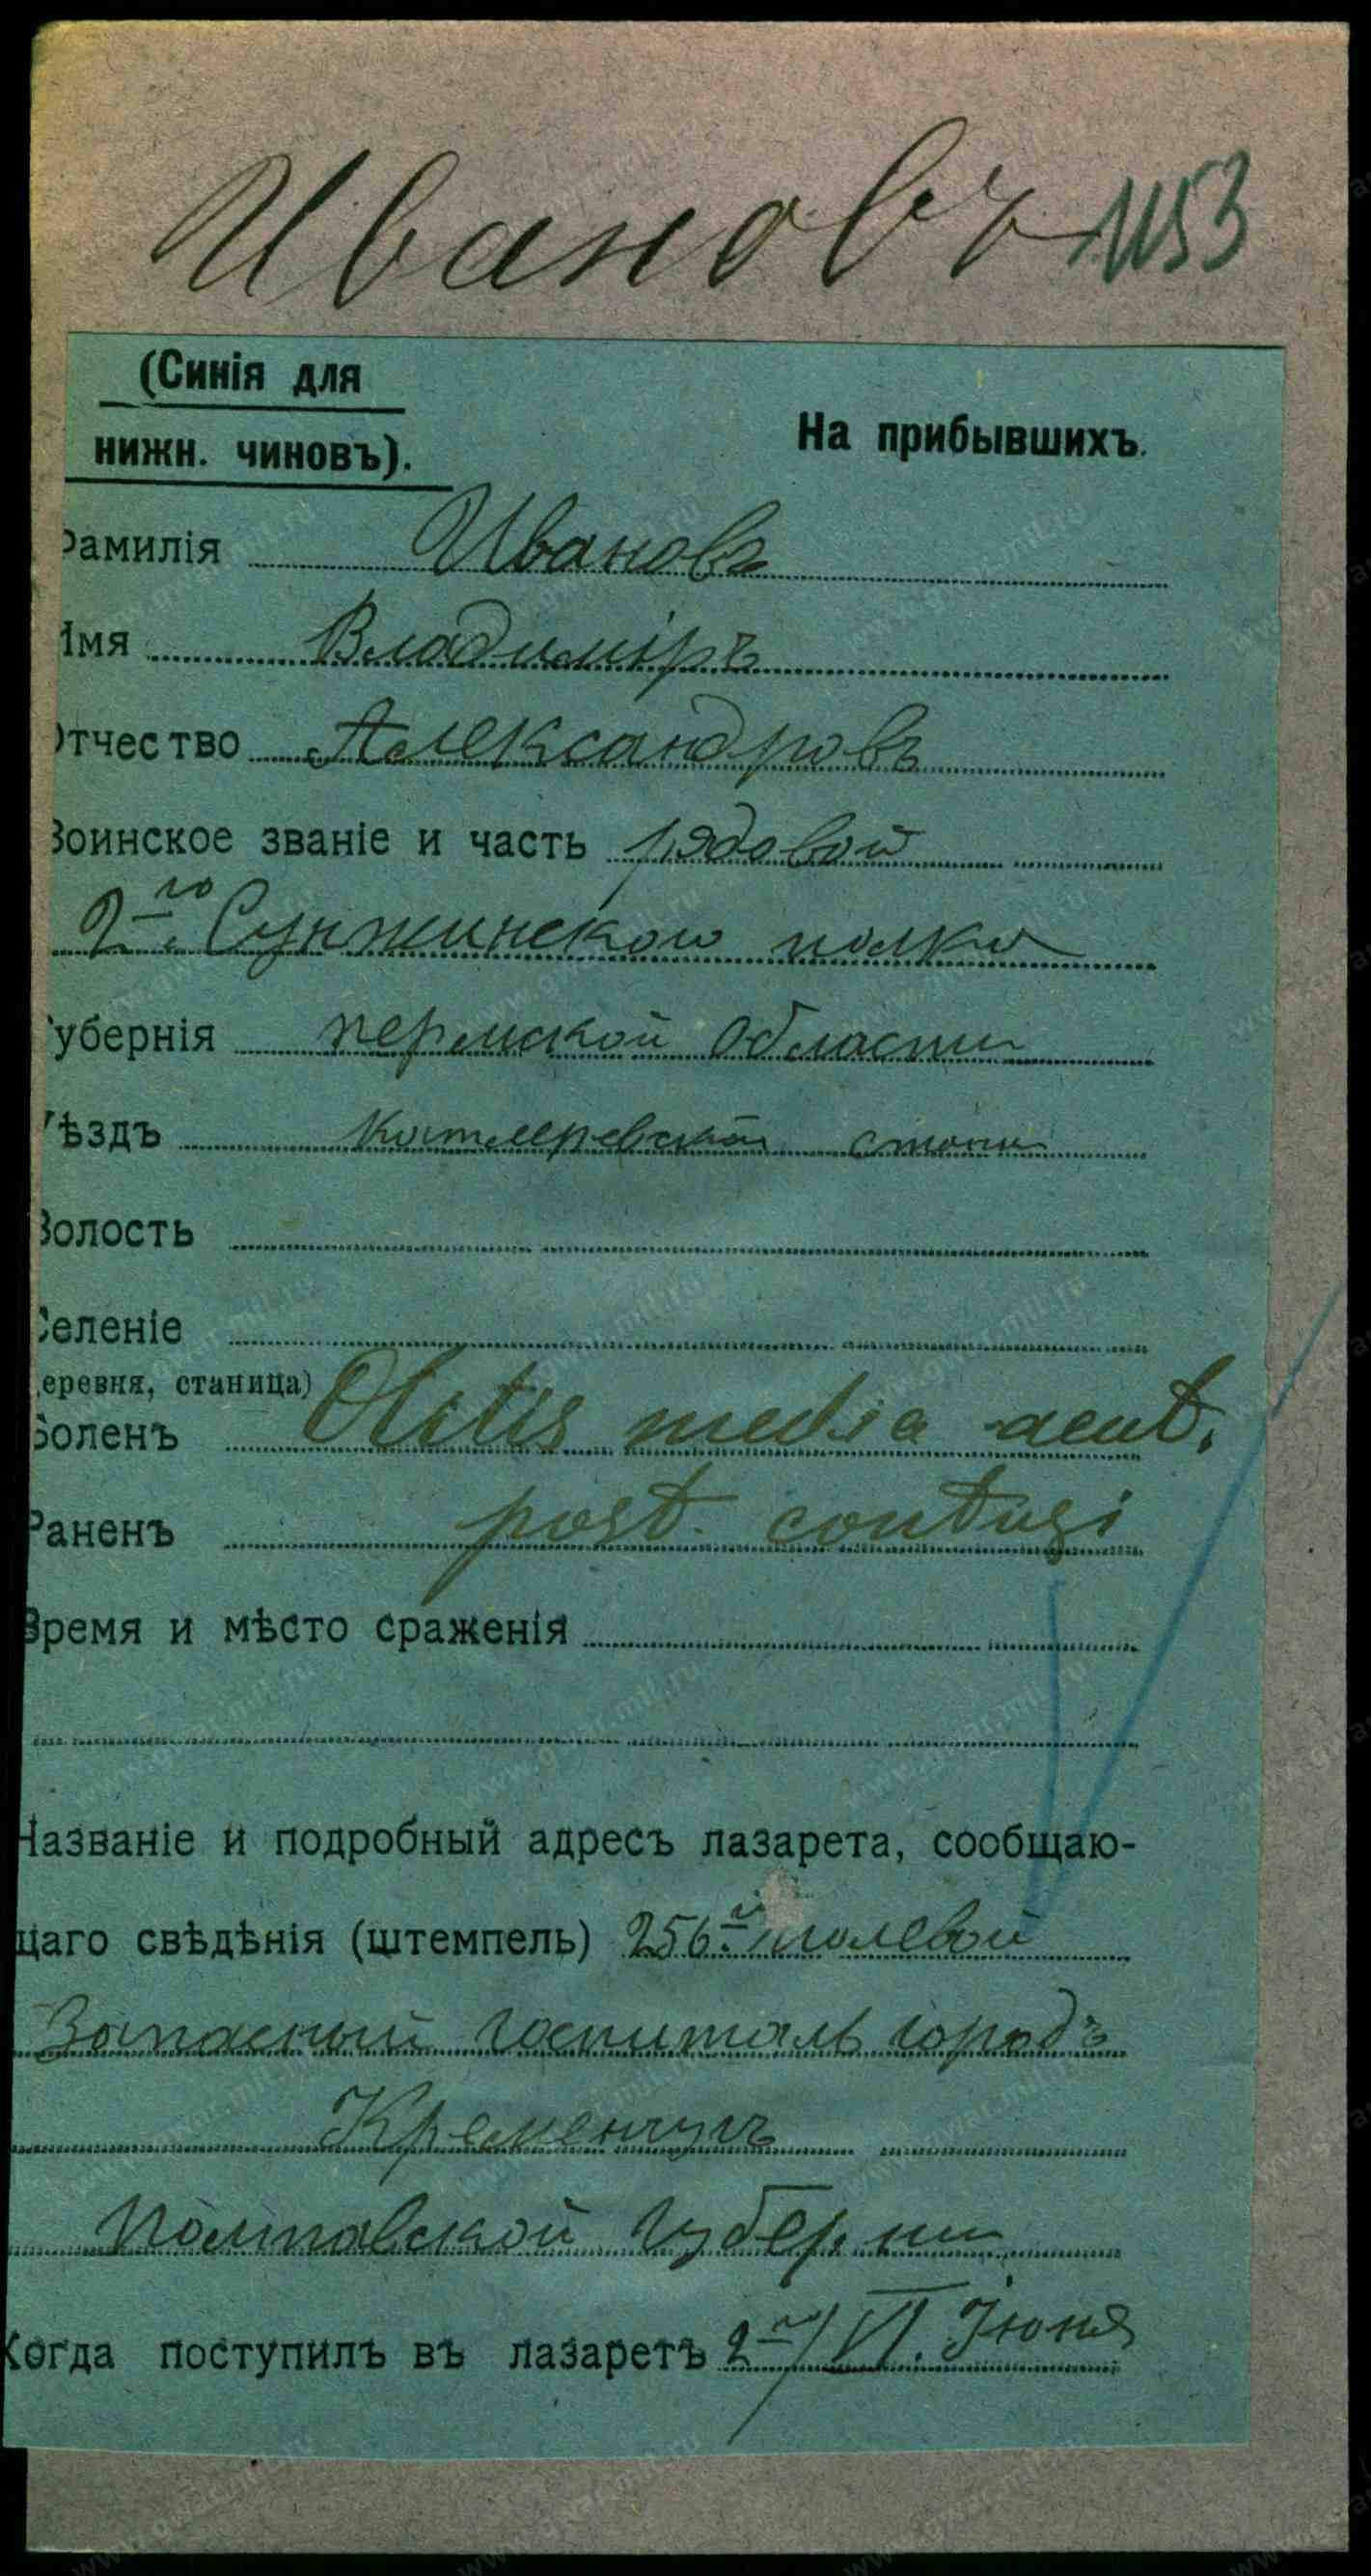 Ивановъ 1153
(Синія для
нижн. чиновъ).
На прибывшихъ.
амилія Ивановъ
Имя Владиміръ
Отчество Александровъ
Воинское званіе и часть рядовой
2го Сунжинского полка
Губернія пермской области
Уѣздъ
Волость
Селеніе
деревня, станица)
Боленъ Otitis media acut.
Раненъ post contusi
Время и мѣсто сраженія
Названіе и подробный адресъ лазарета, сообщаю-
щаго свѣдѣнія (штемпель) 256й полевой
Запасный госпиталь городъ
Кременчугъ
Полтавской губерни
Когда поступилъ въ лазаретъ 2го/VI. Іюня
www.gwar.mil.ru